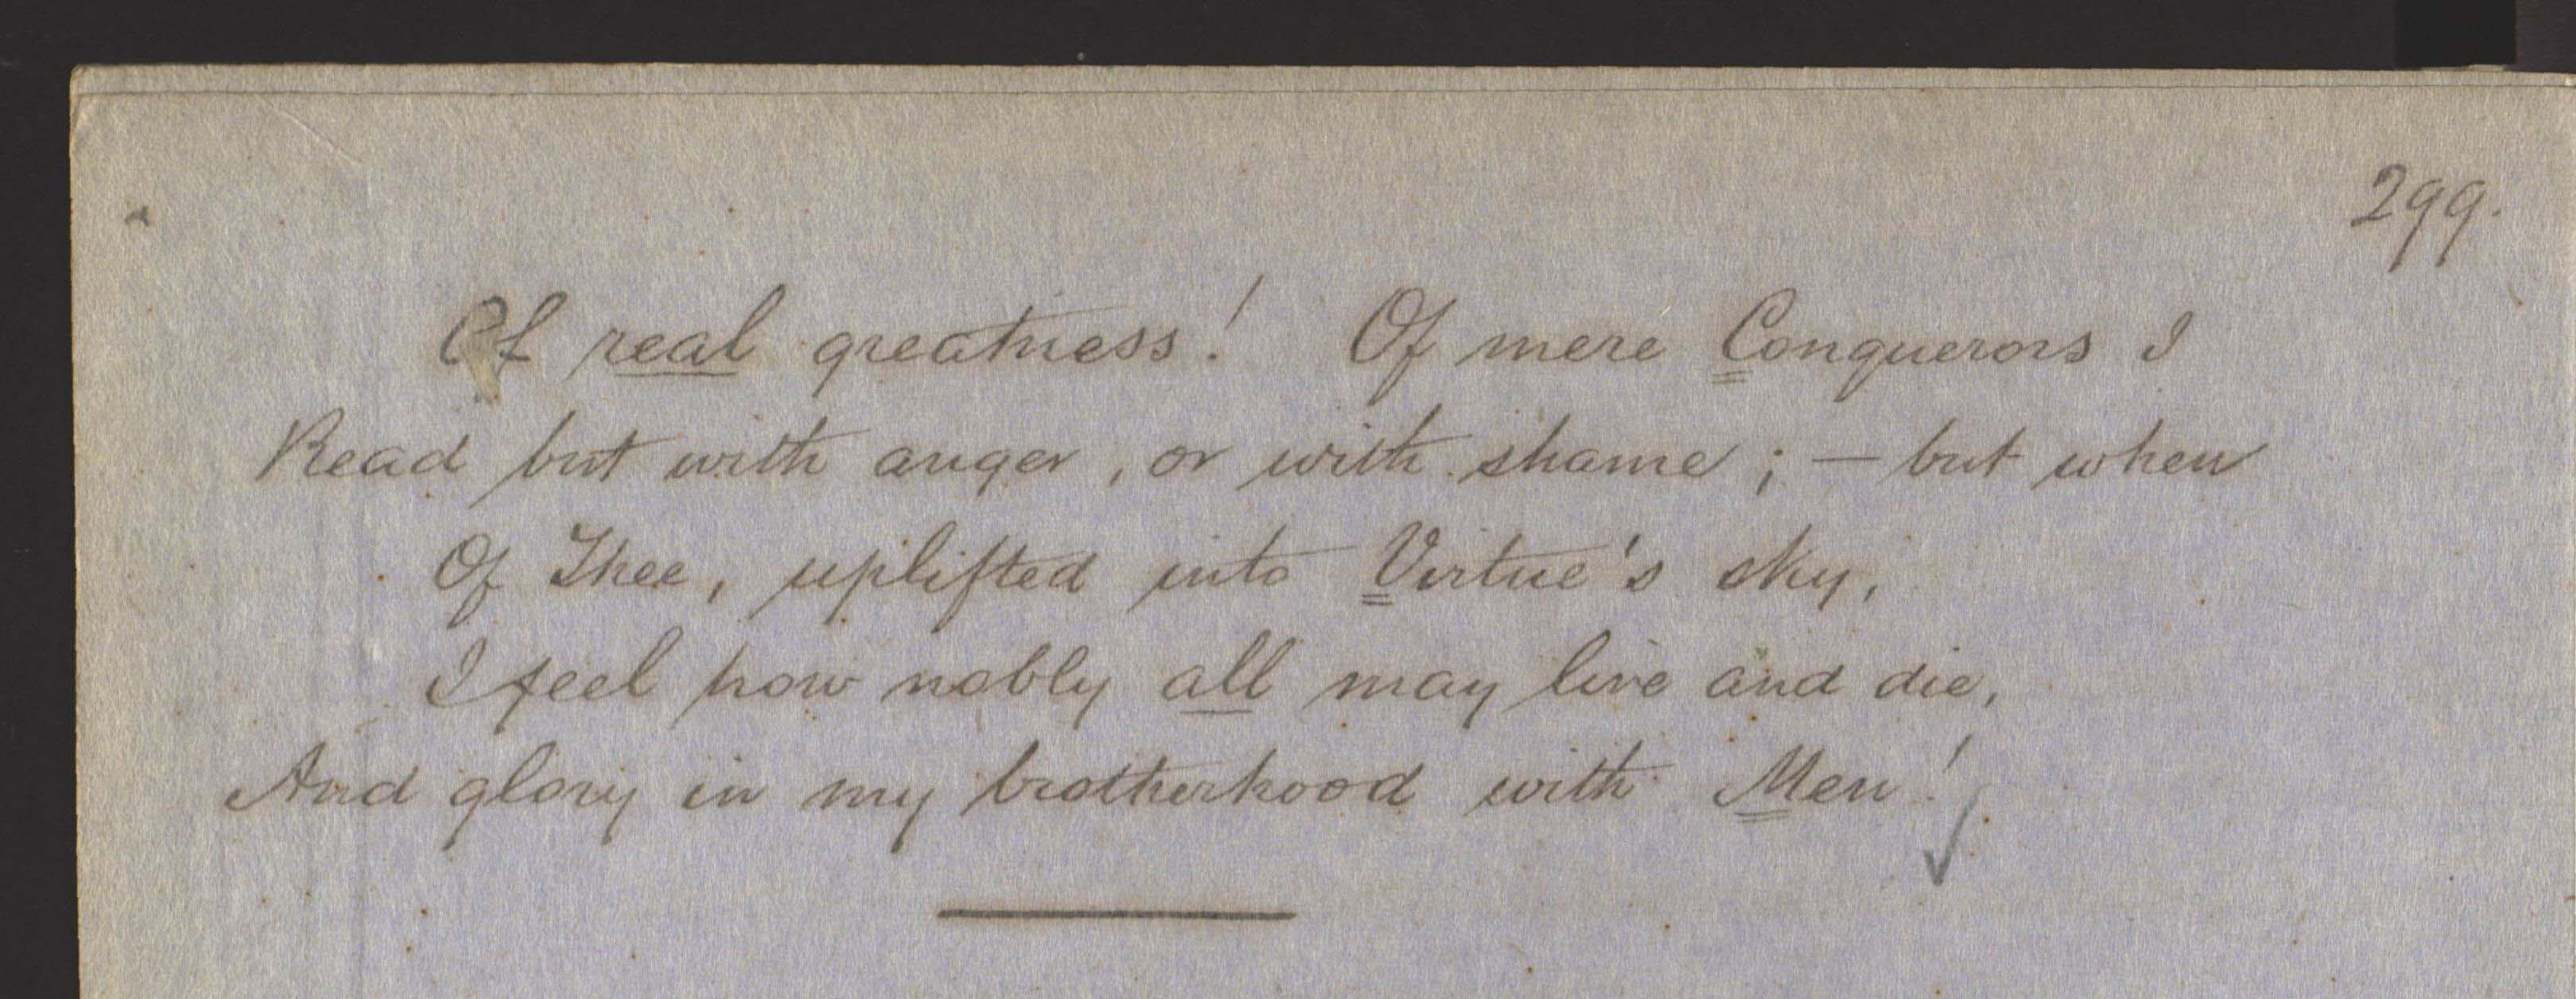 299.
Of real greatness! Of mere Conquerors I
Read but with anger, or with shame; — but when
Of Thee, uplifted into Virtue's sky,
I feel how nobly all may live and die,
And glory in my brotherhood with Men!